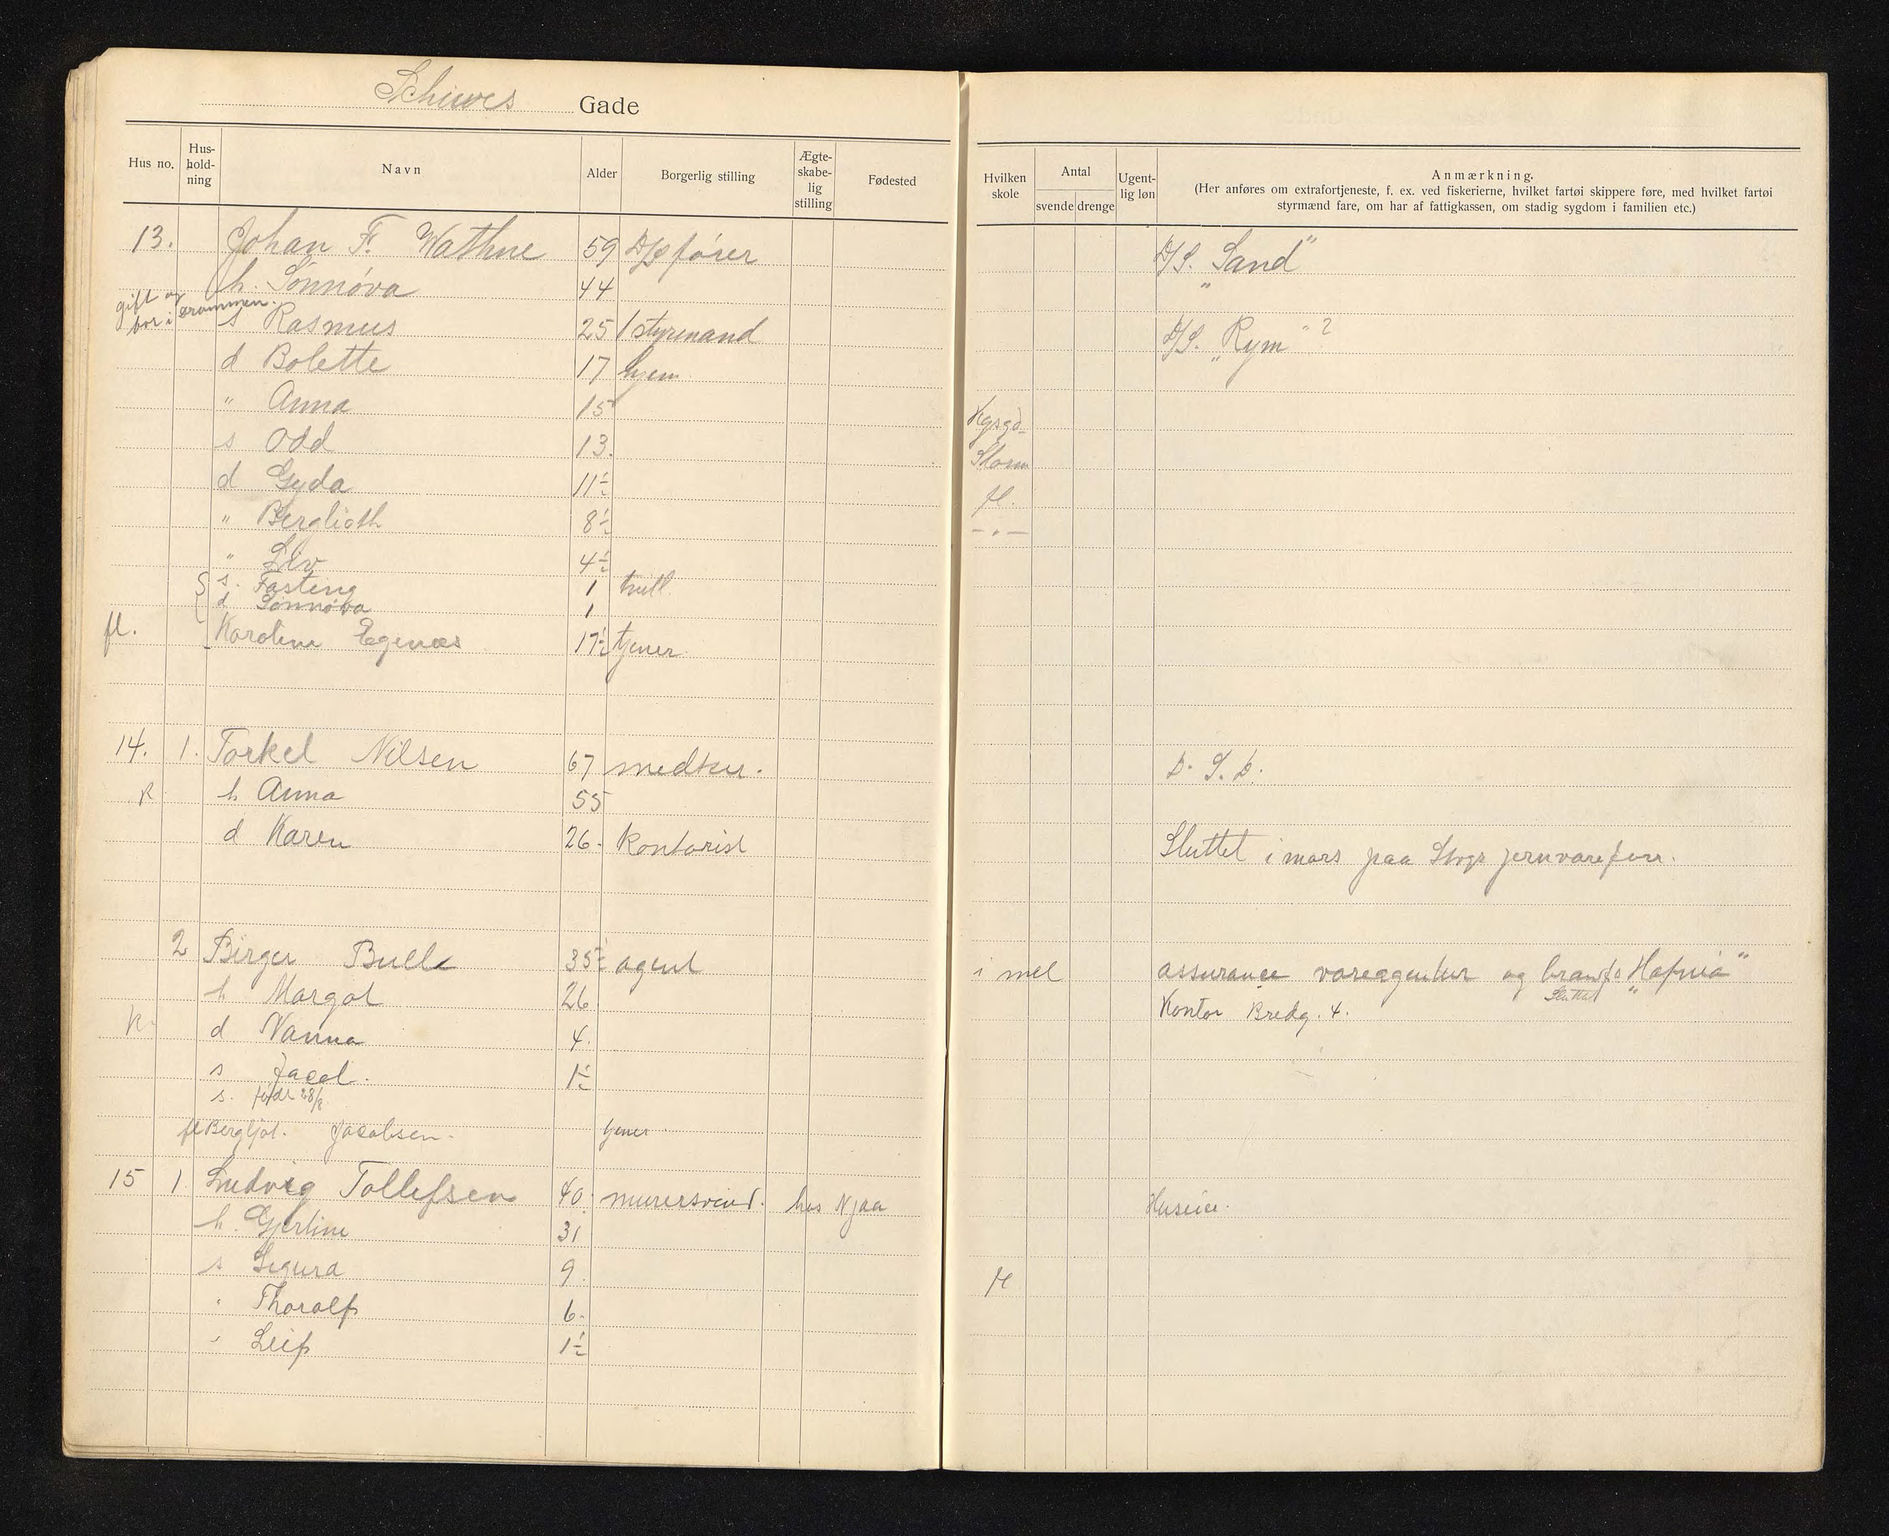 Schiwes Gade
Hus no. Hus-hold-ning Navn Alder Borgerlig stilling Ægte-skabe-lig stilling Fødested
Hvilken skole Antal svende drenge Ugent-lig løn Anmærkning.
(Her anføres om extrafortjeneste, f. ex. ved fiskerierne, hvilket fartøi skippere føre, med hvilket fartøi
styrmænd fare, om har af fattigkassen, om stadig sygdom i familien etc.)
13. Johan F. Wathne 59 D/s fører D/S. "Sand"
h. Sønnøva 44
gift og bor i s Rasmus 25 1 styrmand D/S. "Rym" ?
d Bolette 17 hjem
" Anna 15 Kgsgd
s Odd 13. Storm
d Gyda 11½ fl.
" Berglioth 8½ - " -
" Liv 4½
s. Fasting 1 tvill.
d Sønnøva 1
fl. Karoline Egenæs 17½ tjener
14. 1. Torkel Nilsen 67 D. S. D.
R h Anna 55
d Karen 26. kontorist Sluttet i mars paa Stvgs jernvareforr.
2 Birger Bull 35½ agent i mel assurance vareagentur og "Hafnia"
h Margot 26 Sluttet Kontor Bredg. 4.
R. d Nanna 4.
s 1½
s. født 28/8
fl Bergljot. Jacobsen. tjener
15 1. Ludvig Tollefsen 40. murersvend. hos Njaa Huseier.
h. Gjertine 31
s Sigurd 9. fl
" Thoralf 6.
" Leif 1½